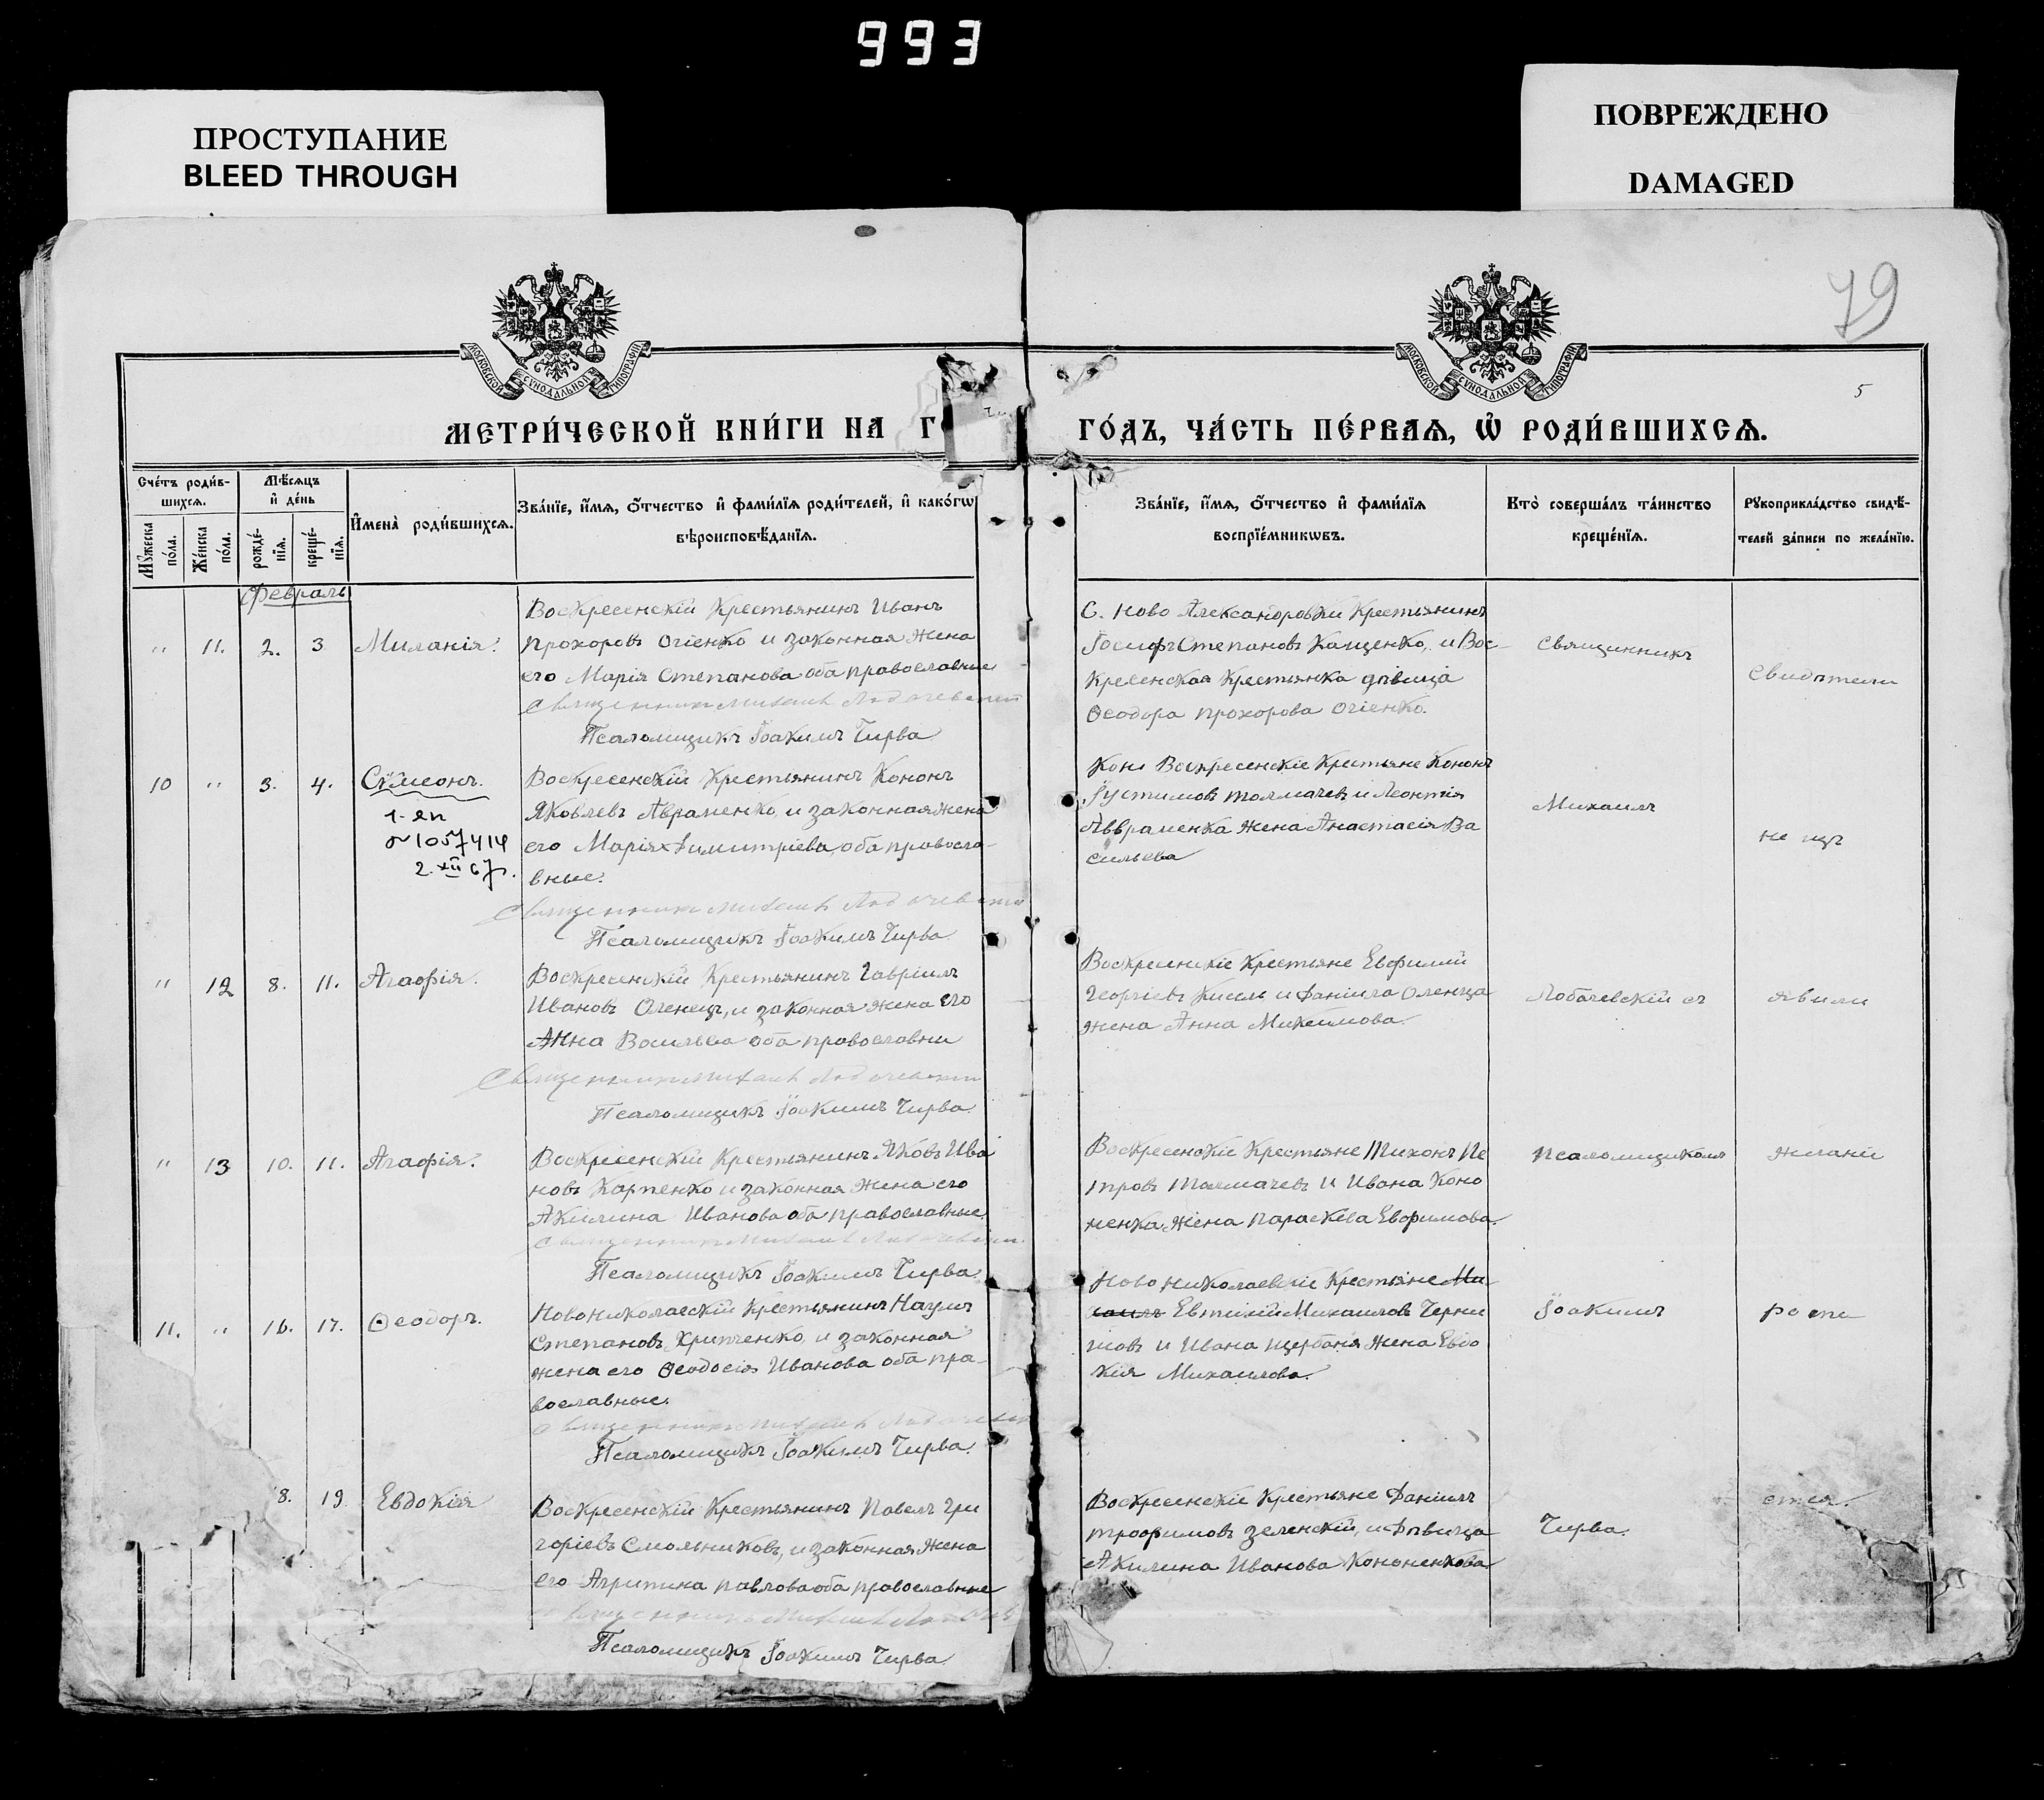 993
ПРОСТУПАНИЕ
BLEED THROUGH
ПОВРЕЖДЕНО
DAMAGED
79
5
МОСКОВСКОЙ СѴНОДАЛЬНОЙ ТИПОГРАФІИ
МОСКОВСКОЙ СѴНОДАЛЬНОЙ ТИПОГРАФІИ
МЕТРИ́ЧЕСКОЙ КНИ́ГИ НА Г
ГО́ДЪ, ЧА́СТЬ ПЕ́РВАѦ, Ѡ҆ РОДИ́ВШИХСѦ.
Сче́тъ роди́в-
шихсѧ.
Мѣ́сѧцъ
и҆ де́нь
Мꙋ́жеска
по́ла.
Же́нска
по́ла.
рожде́-
нїѧ.
креще́-
нїѧ.
И҆мена̀ роди́вшихсѧ.
Зва́нїе, и҆́мѧ, ѻ҆́тчество и҆ фами́лїѧ роди́телей, и҆ како́гѡ
вѣроисповѣ́данїѧ.
Зва́нїе, и҆́мѧ, ѻ҆́тчество и҆ фами́лїѧ
воспрїе́мникѡвъ.
Кто̀ соверша́лъ та́инство
креще́нїѧ.
Рꙋкоприкла́дство свидѣ́-
телей за́писи по жела́нїю.
Февраль
" 11. 2. 3 Миланія.
Воскресенскій Крестьянинъ Иванъ
Прохоровъ Огіенко и законная жена
его Марія Степанова оба православные
Священникъ Михаилъ Лобачевскій
Псаломщикъ Іоакимъ Чирва
С. Ново Александровки Крестьянинъ
Іосифъ Степановъ Кащенко, и Вос-
кресенская Крестьянка дѣвица
Ѳеодора Прохорова Огіенко.
Священникъ
Свидѣтели
10 " 3. 4. Сѵмеонъ.
1-еп
№1057414
2.XII 67г.
Воскресенскій Крестьянинъ Кононъ
Яковлевъ Авраменко, и законная жена
его Марія Димитріева, оба правосла-
вные.
Священникъ Михаилъ Лобачевскій
Псаломщикъ Іоакимъ Чирва
Воскресенскіе Крестьяне Кононъ
Іустимовъ Толмачевъ и Леонтія
Авраменка жена Анастасія Ва
сильева
Михаилъ
не изъ
" 12 8. 11. Агафія.
Воскресенскій Крестьянинъ Гавріилъ
Ивановъ Оленецъ, и законная жена его
Анна Васильева оба православни
Священникъ Михаилъ Лобачевскій
Псаломщикъ Іоакимъ Чирва
Воскресенскіе Крестьяне Евфимій
Георгіевъ Кисель и Даніила Оленца
жена Анна Максимова.
Лобачевскій съ
явили
" 13 10. 11. Агафія.
Воскресенскій Крестьянинъ Яковъ Ива
новъ Карпенко и законная жена его
Акилина Иванова оба православные.
Священникъ Михаилъ Лобачевскій
Псаломщикъ Іоакимъ Чирва
Воскресенскіе Крестьяне Тихонъ Пе
тровъ Толмачевъ и Ивана Коно
ненка жена Параскева Евфимова.
Псаломщикомъ
желаній
11. " 16. 17. Ѳеодоръ.
Новониколаескій Крестьянинъ Наумъ
Степановъ Хрипченко, и законная
жена его Ѳеодосія Иванова оба пра-
вославные.
Священникъ Михаилъ Лобачевскій
Псаломщикъ Іоакимъ Чирва.
Ново Николаевскіе Крестьяне Ми
хаилъ Евтихій Михаиловъ Черни
шовъ и Ивана Щербаня жена Евдо
кія Михаилова.
Іоакимъ
роспи
8. 19. Евдокія
Воскресенскій Крестьянинъ Павелъ Гри
горіевъ Смольниковъ, и законная жена
его Агрипина Павлова оба православные
Священникъ Михаилъ
Псаломщикъ Іоакимъ Чирва
Воскресенскіе Крестьяне Даніилъ
Трофимовъ Зеленскій, и дѣвица
Акилина Иванова Кононенкова
Чирва.
ться.